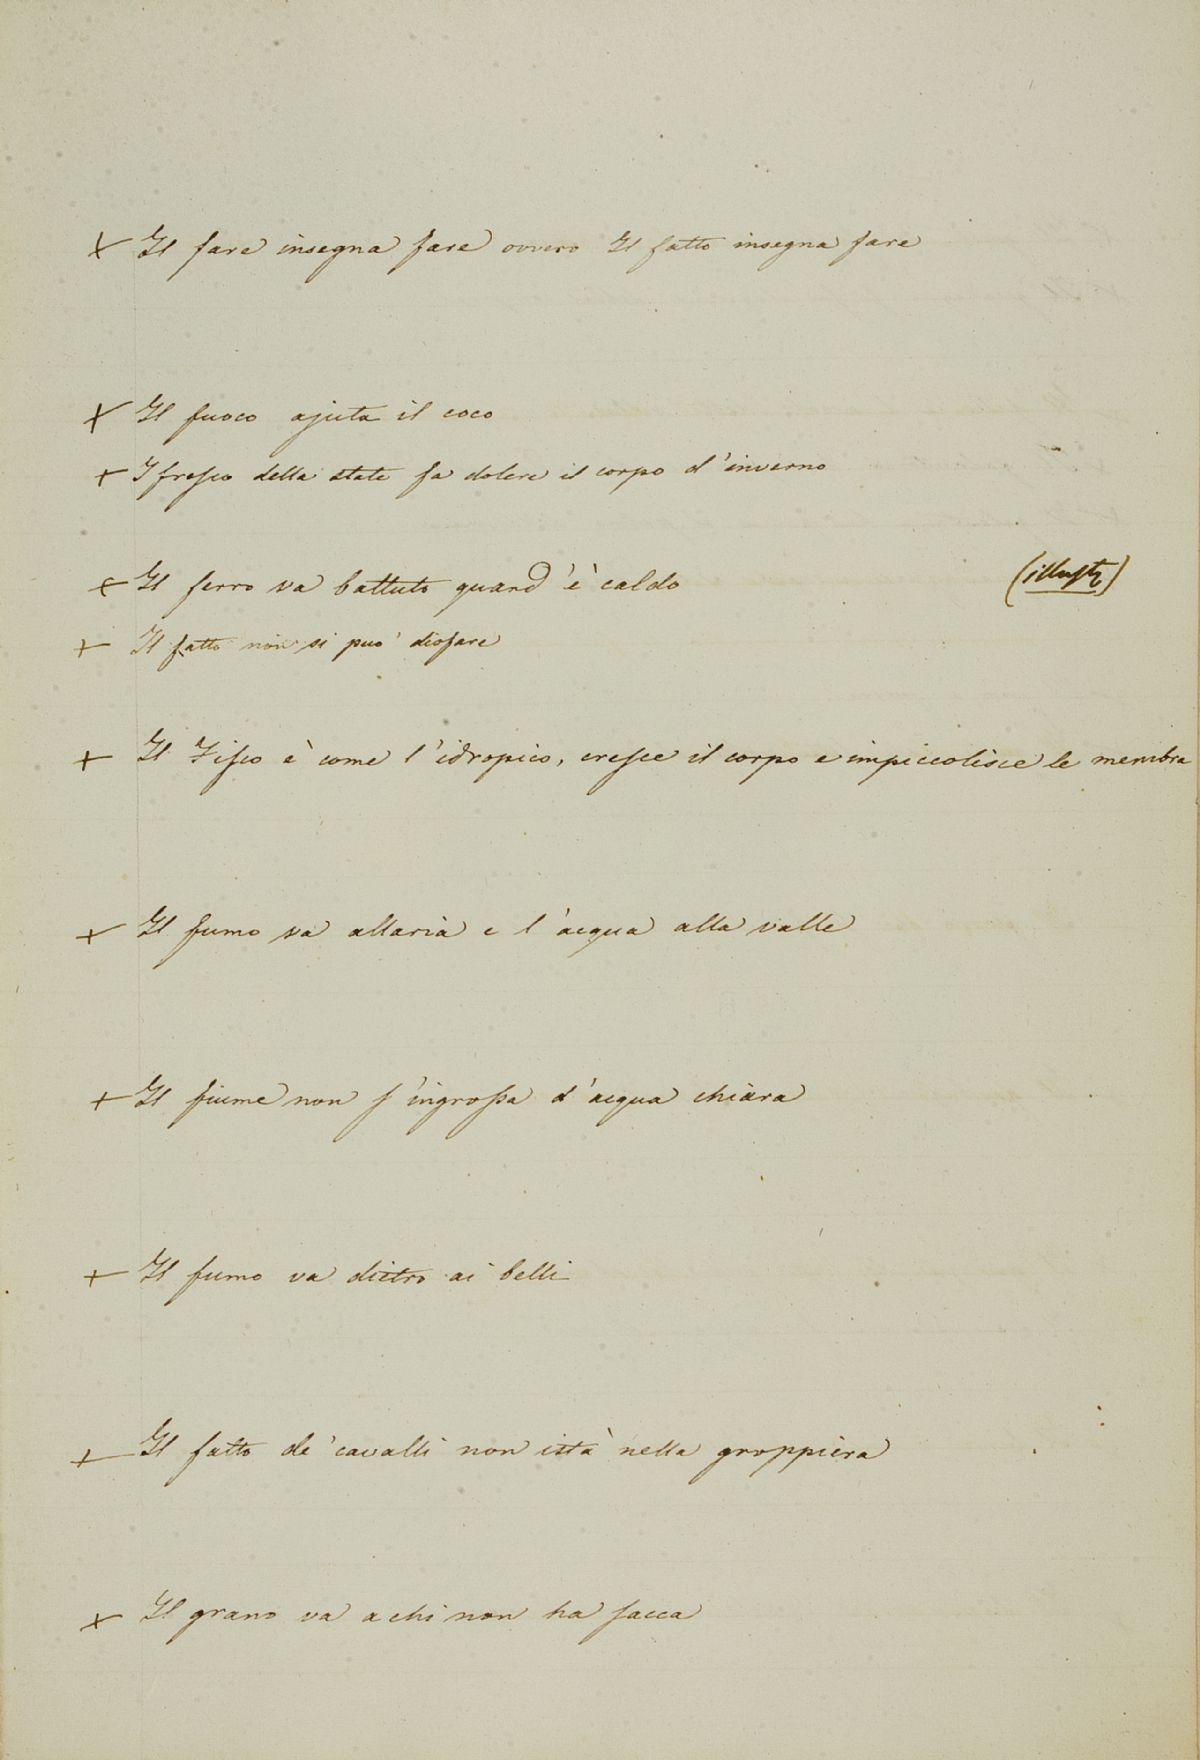 + Il fare insegna fare ovvero Il fatto insegna fare
+ Il fuoco ajuta il coco
+ I fresco della state fa dolere il corpo d'inverno
+ Il ferro va battuto quand'è caldo (illustr)
+ Il fatto non si può disfare
+ Il Fisco è come l'idropico, cresce il corpo e impiccolisce le membra
+ Il fumo va all'aria e l'acqua alla valle
+ Il fiume non s'ingrossa d'acqua chiara
+ Il fumo va dietro ai belli
+ Il fatto de' cavalli non istà nella groppiera
+ Il grano va a chi non ha sacca